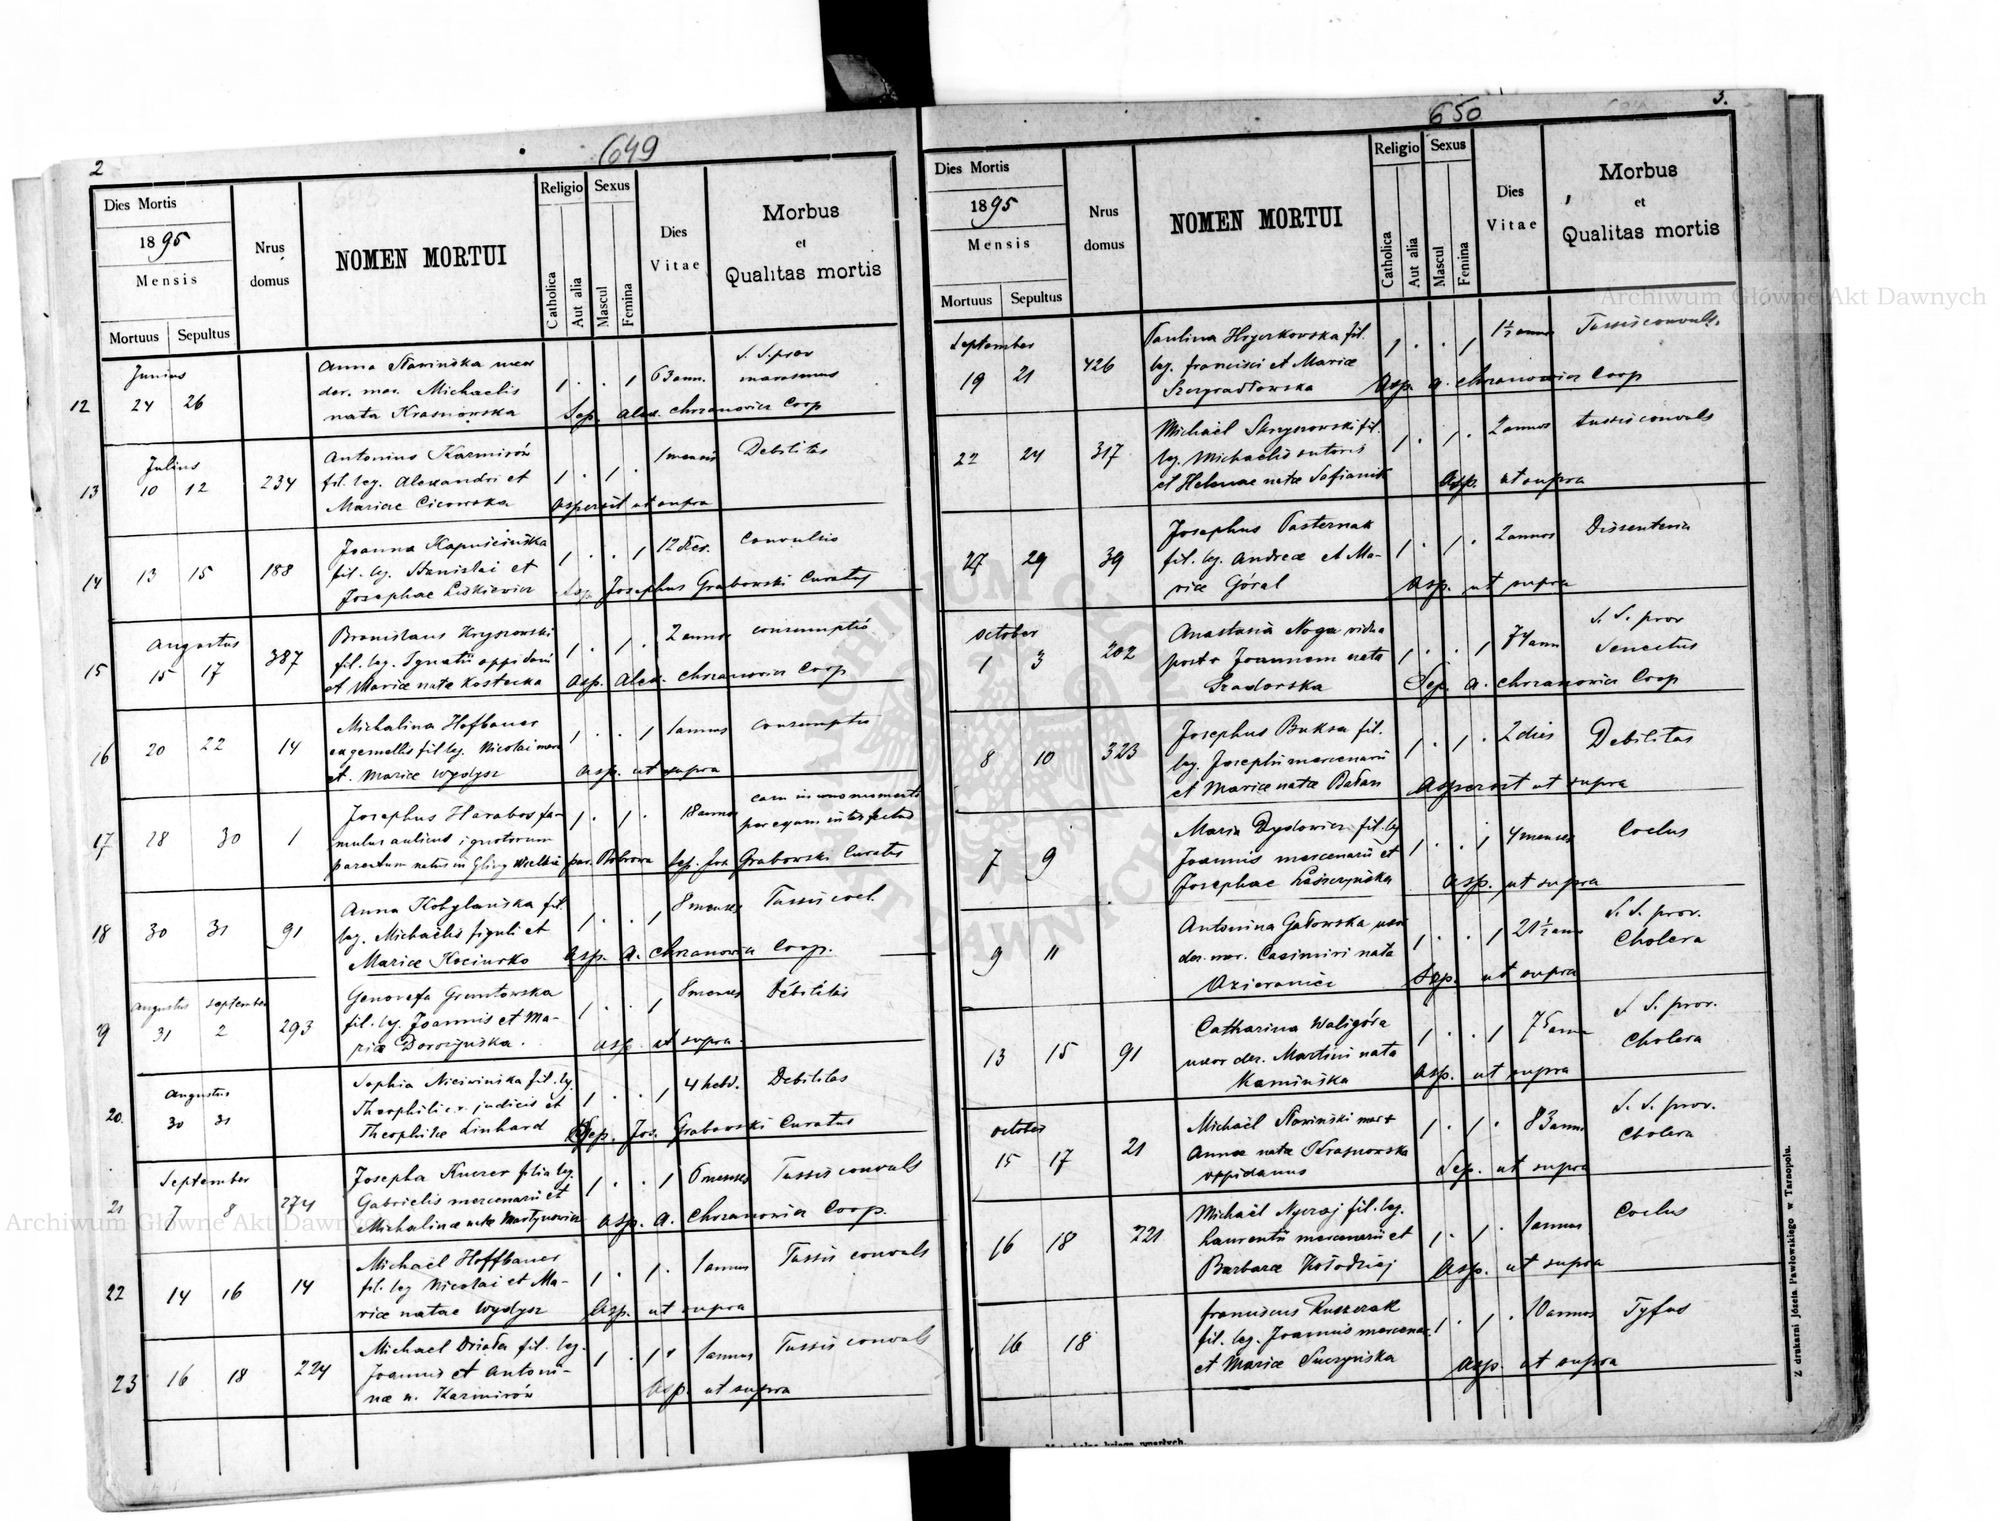 2
649
Dies Mortis
1895
Mensis
Mortuus Sepultus
Nrus domus
NOMEN MORTUI
Religio
Catholica
Aut alia
Sexus
Mascul
Femina
Dies Vitae
Morbus
et
Qualitas mortis
Junius
12 24 26
Anna Słowińska uxor
der. mer. Michaelis
nata Krasnowska
1 . . 1 63 ann. S. S. prov
marasmus
Sep. Alex. Chrzanowicz Coop
Julius
13 10 12 234
Antonius Kazmirów
fil. leg. Alexandri et
Mariae Cicowska
1 . 1 . 1 mensis Debilitas
Aspersit ut supra
14 13 15 188
Joanna Kapuścińska
fil. leg. Stanislai et
Josephae Liskiewicz
1 . . 1 12 dies. Convulsio
Josephus Grabowski Curatus
Augustus
15 15 17 387
Bronislaus Hryszowski
fil. leg. Ignatii oppidani
et Mariae natae Kostecka
1 . 1 . 2 annos consumptio
Asp. Alex. Chrzanowicz Coop
16 20 22 14
Michalina Hofbauer
ex gemellis fil. leg. Nicolai merc
et Mariae Wydysz
1 . . 1 1 annus consumptio
Asp. ut supra
17 28 30 1
Josephus Harabos fa-
mulus aulicus ignotorum
parentum natus in Gliny Wielkie
1 . 1 . 18 annos
par. Bobrowa Sep. Jos. Grabowski Curatus
18 30 31 91
Anna Kobylańska fil.
leg. Michaelis figuli et
Mariae Kociurko
1 . . 1 8 menses Tussis coel.
Asp. A. Chrzanowicz Coop.
Augustus September
19 31 2 293
Genovefa Gruntowska
fil. leg. Joannis et Ma-
riae Doroszyńska.
1 . . 1 8 menses Debilitas
Asp. ut supra.
Augustus
20. 30 31
Sophia Niciwińska fil. leg.
Theophili c. r. judicis et
Theophilae Linhard
1 . . 1 4 hebd. Debilitas
Sep. Jos. Grabowski Curatus
September
21 7 8 274
Josepha Knerer filia leg.
Gabrielis mercenarii et
Michalinae natae Martynowicz
1 . . 1 6 menses Tussis convuls
Asp. A. Chrzanowicz Coop.
22 14 16 14
Michael Hoffbauer
fil. leg Nicolai et Ma-
riae natae Wydysz
1 . 1 . 1 annus Tussis convuls
Asp. ut supra
23 16 18 224
Michael Działa fil. leg.
Joannis et Antoni-
nae n. Kazmirów
1 . 1 . 1 annus Tussis convuls
Asp. ut supra
650
3.
Dies Mortis
1895
Mensis
Mortuus Sepultus
Nrus domus
NOMEN MORTUI
Religio
Catholica
Aut alia
Sexus
Mascul
Femina
Dies Vitae
Morbus
et
Qualitas mortis
September
19 21 426
Paulina Hryczkowska fil.
leg. Francisci et Mariae
Szczygradłowska
1 . . 1 1½ annos Tussis convuls.
Asp. A. Chrzanowicz Coop
22 24 317
Michaël Skryszowski fil.
leg. Michaelis sutoris
et Helenae natae Safianik
1 . 1 . 2 annos tussis convuls
Asp. ut supra
27 29 39
Josephus Pasternak
fil. leg. Andreae et Ma-
riae Góral
1 . 1 . 2 annos Dissenteria
Asp. ut supra
October
1 3 202
Anastasia Noga vidua
post + Joannem nata
Szadorska
1 . . 1 74 ann S. S. prov
Senectus
Sep. A. Chrzanowicz Coop
8 10 323
Josephus Buksa fil.
leg. Josephi mercenarii
et Mariae natae Bałan
1 . 1 . 2 dies Debilitas
Aspersit ut supra
7 9
Maria Dydowicz fil. leg
Joannis mercenarii et
Josephae Laszczyńska
1 . . 1 4 menses Coelus
Asp. ut supra
9 11
Antonina Gałowska uxor
der. mer. Casimiri nata
1 . . 1 21½ ann S. S. prov.
Cholera
Sep. ut supra
13 15 91
Catharina Waligóra
uxor der. Martini nata
Kamińska
1 . . 1 75 ann S. S. prov.
Cholera
Asp. ut supra
October
15 17 21
Michaël Słowiński mar +
Annae natae Krasnowska
oppidanus
1 . 1 . 83 ann S. S. prov.
Cholera
Sep. ut supra
16 18 221
Michaël Nycraj fil. leg.
Laurentii mercenarii et
Barbarae Kołodziej
1 . 1 . 1 annus Coelus
Asp. ut supra
16 18
Franciscus Ruszczak
fil. leg. Joannis mercenar
et Mariae Suczyńska
1 . 1 . 10 annos Tyfus
Asp. ut supra
Z drukarni Józefa Pawłowskiego w Tarnopolu.
Archiwum Główne Akt Dawnych
Archiwum Główne Akt Dawnych
ARCHIWUM GŁÓWNE AKT DAWNYCH